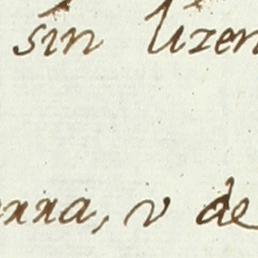 sin lizen
erra, v de